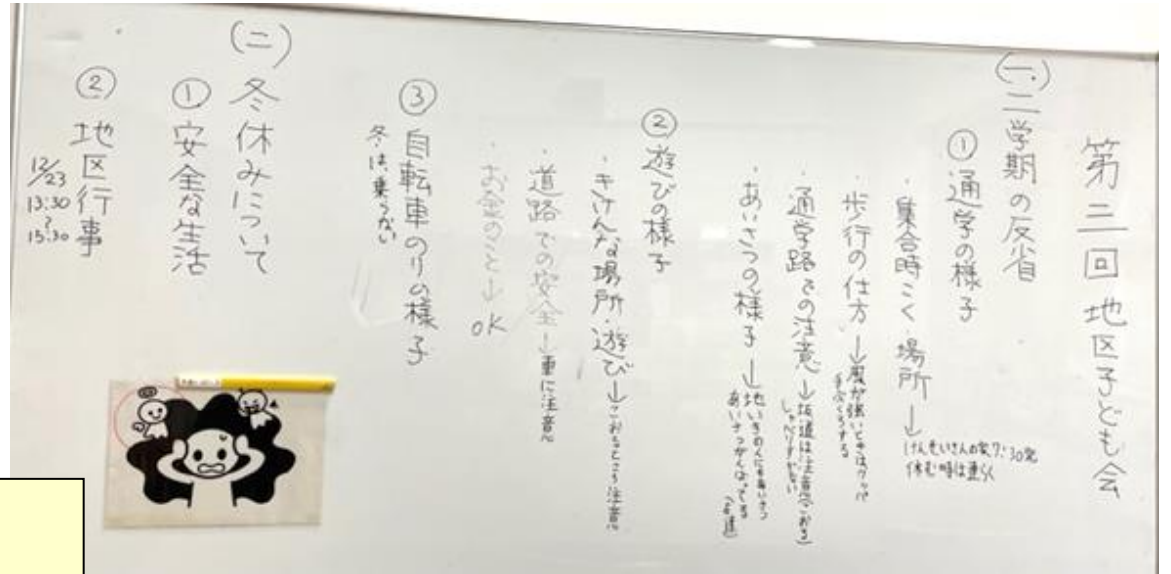 第三回 地区子ども会
(一) 二学期の反省
① 通学の様子
・集合時こく・場所→
けんせいさんの家7:30発
休む時は連らく
・歩行の仕方→風が強いときはカッパ
手ぶくろする
・通学路での注意→坂道は注意(こおる)
しゃべりすぎない
・あいさつの様子→地いきの人にもあいさつ
あいさつがんばってる
② 遊びの様子
・きけんな場所・遊び→こおったところ注意
・道路での安全→車に注意
・お金のこと→OK
③ 自転車のりの様子
冬は、乗らない
(二) 冬休みについて
① 安全な生活
② 地区行事
12/23
13:30
〜
15:30